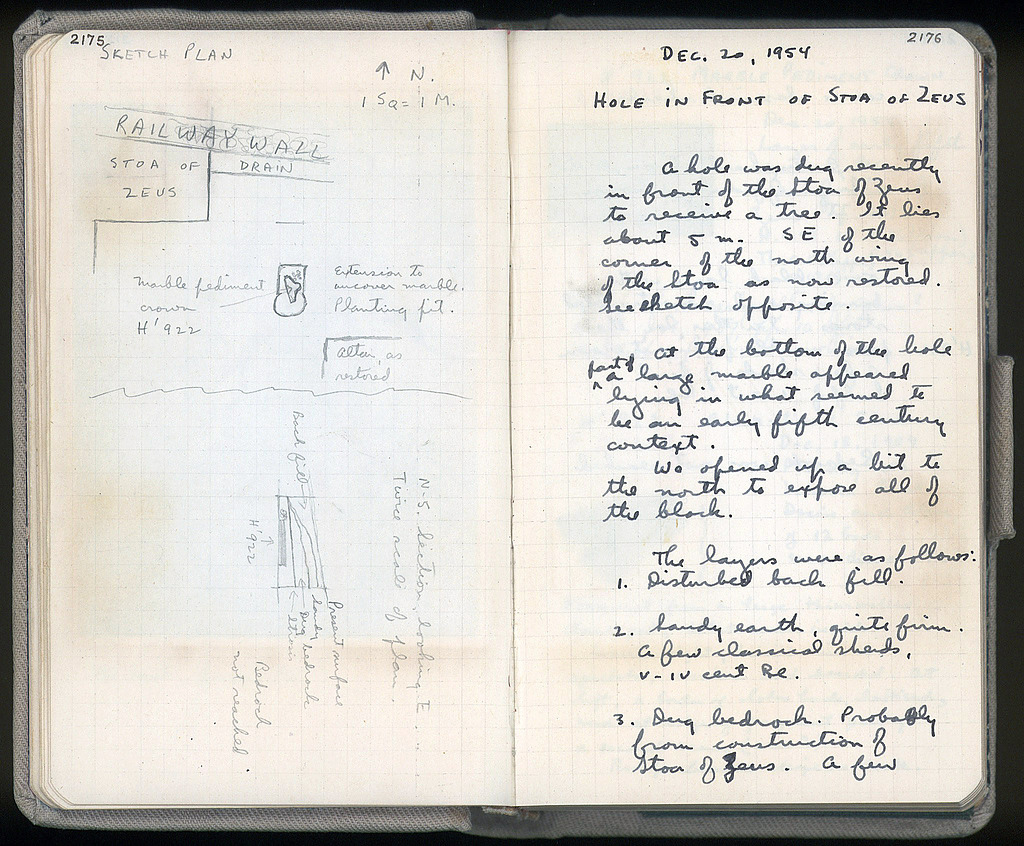 2175
SKETCH PLAN
↑ N.
1 SQ = 1 M.
RAILWAY WALL
STOA OF
ZEUS
DRAIN
Marble pediment
crown
H'922
Extension to
uncover marble.
Planting pit.
Altar, as
restored
N-S. Section, looking E.
Twice scale of plan.
Back fill
H'922
Present surface
Sandy
Dug bedrock
Bedrock
not reached
2176
DEC. 20, 1954
HOLE IN FRONT OF STOA OF ZEUS
A hole was dug recently
in front of the Stoa of Zeus
to receive a tree. It lies
about 5 m. SE of the
corner of the north wing
of the Stoa as now restored.
See sketch opposite.
At the bottom of the hole
part of
a large marble appeared
lying in what seemed to
be an early fifth century
context.
We opened up a bit to
the north to expose all of
the block.
The layers were as follows:
1. Disturbed back fill.
2. Sandy earth, quite firm.
A few classical sherds,
V-IV cent BC.
3. Dug bedrock. Probably
from construction of
Stoa of Zeus. A few